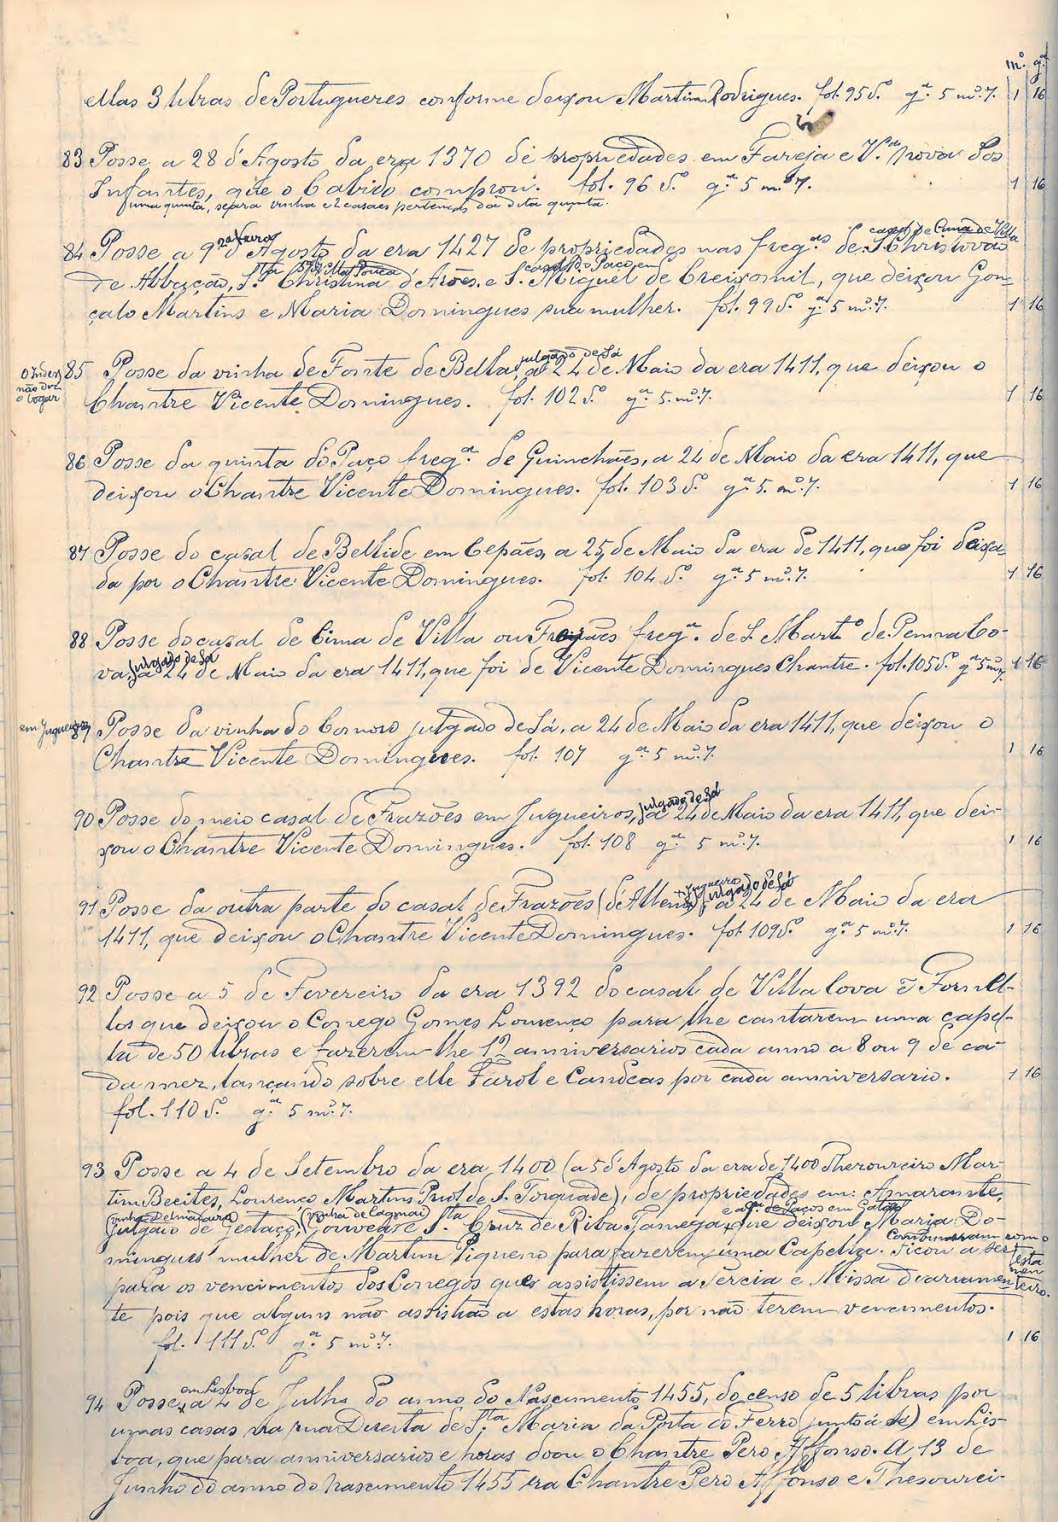 m.º g.ª
ellas 3 libras de Portuguezes conforme deixou Martim Rodrigues. fol. 95 v.º g.ª 5 m.º 7. 1 16
83 Posse a 28 d'Agosto da era 1370 de propriedades em Fareja e V.ª Nova dos
Infantes, que o Cabido comprou. fol. 96 v.º g.ª 5 m.º 7. 1 16
uma quinta, seara vinha e 2 casaes pertenças da dita quinta.
casal de Cima de Villa
84 Posse a 9 d'Agosto da era 1427 de propriedades nas freg.as de S. Christovão
de Abbação, S.ta Christina d'Arões e S. Miguel de Creixomil, que deixou Gon-
çalo Martins e Maria Domingues sua mulher. fol. 99 v.º g.ª 5 m.º 7. 1 16
julgado de Sá
85 Posse da vinha de Fonte de Bella, a 24 de Maio da era 1411, que deixou o
O Index não diz o logar
Chantre Vicente Domingues. fol. 102 v.º g.ª 5 m.º 7. 1 16
86 Posse da quinta do Paço freg.ª de Guinchães, a 24 de Maio da era 1411, que
deixou o Chantre Vicente Domingues. fol. 103 v.º g.ª 5 m.º 7. 1 16
87 Posse do casal de Belhide em Cepães, a 25 de Maio da era de 1411, que foi deixa-
da por o Chantre Vicente Domingues. fol. 104 v.º g.ª 5 m.º 7. 1 16
88 Posse do casal de Cima de Villa ou freg.ª de S. Mart.º de Penna Co-
julgado de Sá
va, a 24 de Maio da era 1411, que foi de Vicente Domingues Chantre. fol. 105 v.º g.ª 5 m.º 7. 1 16
89 Posse da vinha do Cornoro julgado de Sá, a 24 de Maio da era 1411, que deixou o
Chantre Vicente Domingues. fol. 107 g.ª 5 m.º 7. 1 16
julgado de Sá
90 Posse do meio casal de Frazões em Jugueiros, a 24 de Maio da era 1411, que dei-
xou o Chantre Vicente Domingues. fol. 108 g.ª 5 m.º 7. 1 16
Jugueiros julgado de Sá
91 Posse da outra parte do casal de Frazões a 24 de Maio da era
1411, que deixou o Chantre Vicente Domingues. fol. 109 v.º g.ª 5 m.º 7. 1 16
92 Posse a 5 de Fevereiro da era 1392 do casal de Villa Cova ẽ Fornel-
los que deixou o Conego Gomes Lourenço para lhe cantarem uma capel-
la de 50 libras e fazerem-lhe 12 anniversarios cada anno a 8 ou 9 de ca-
da mez, lançando sobre elle Farol e Candeas por cada anniversario. 1 16
fol. 110 v.º g.ª 5 m.º 7.
93 Posse a 4 de Setembro da era 1400 (a 5 d'Agosto da era de 1400 Thesoureiro Mar-
tim Breites, Lourenço Martins Priol de S. Torquade), de propriedades em: Amarante,
julgado de Gestaço, Gouvea e S.ta Cruz de Riba Tamega, que deixou Maria Do-
mingues mulher de Martim Pigueiro para fazerem uma Capella. Ficou a ser
para os vencimentos dos Conegos que assistissem a Tercia e Missa diariamen-
te pois que alguns não assistião a estas horas, por não terem vencimentos.
fol. 111 v.º g.ª 5 m.º 7. 1 16
em Lisboa
94 Posse, a 4 de Julho do anno do Nascimento 1455, do censo de 5 libras por
umas casas na rua Direita de S.ta Maria da Porta do Ferro (junto á Sé) em Lis-
boa, que para anniversarios e horas doou o Chantre Pero Affonso. A 13 de
Junho do anno do nascimento 1455 era Chantre Pero Affonso e Thesourei-